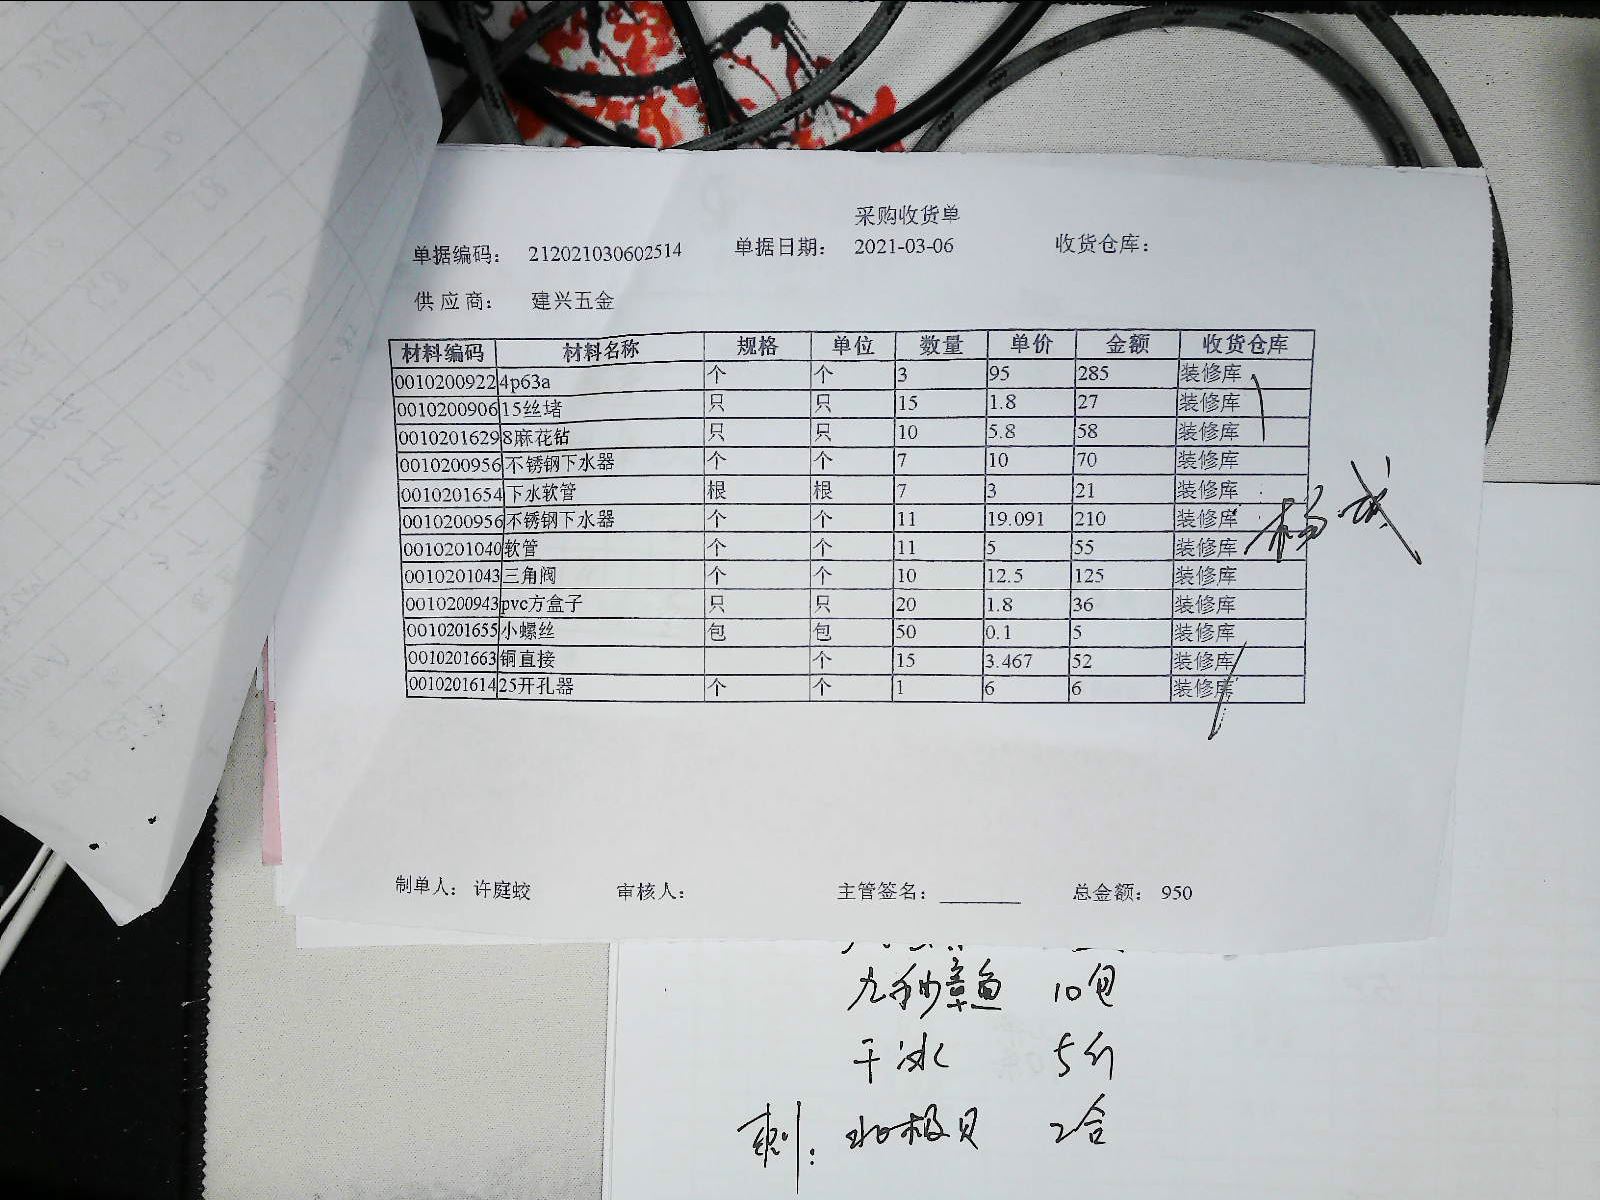 采购收货单
单据编码： 212021030602514 单据日期： 2021-03-06 收货仓库：
供应商： 建兴五金
材料编码 材料名称 规格 单位 数量 单价 金额 收货仓库
0010200922 4p63a 个 个 3 95 285 装修库
0010200906 15丝堵 只 只 15 1.8 27 装修库
0010201629 8麻花钻 只 只 10 5.8 58 装修库
0010200956 不锈钢下水器 个 个 7 10 70 装修库
0010201654 下水软管 根 根 7 3 21 装修库
0010200956 不锈钢下水器 个 个 11 19.091 210 装修库
0010201040 软管 个 个 11 5 55 装修库
0010201043 三角阀 个 个 10 12.5 125 装修库
0010200943 pvc方盒子 只 只 20 1.8 36 装修库
0010201655 小螺丝 包 包 50 0.1 5 装修库
0010201663 铜直接 个 15 3.467 52 装修库
0010201614 25开孔器 个 个 1 6 6 装修库
制单人： 许庭蛟 审核人： 主管签名： 总金额： 950
章鱼 10包
干冰 5斤
刺： 北极贝 2合